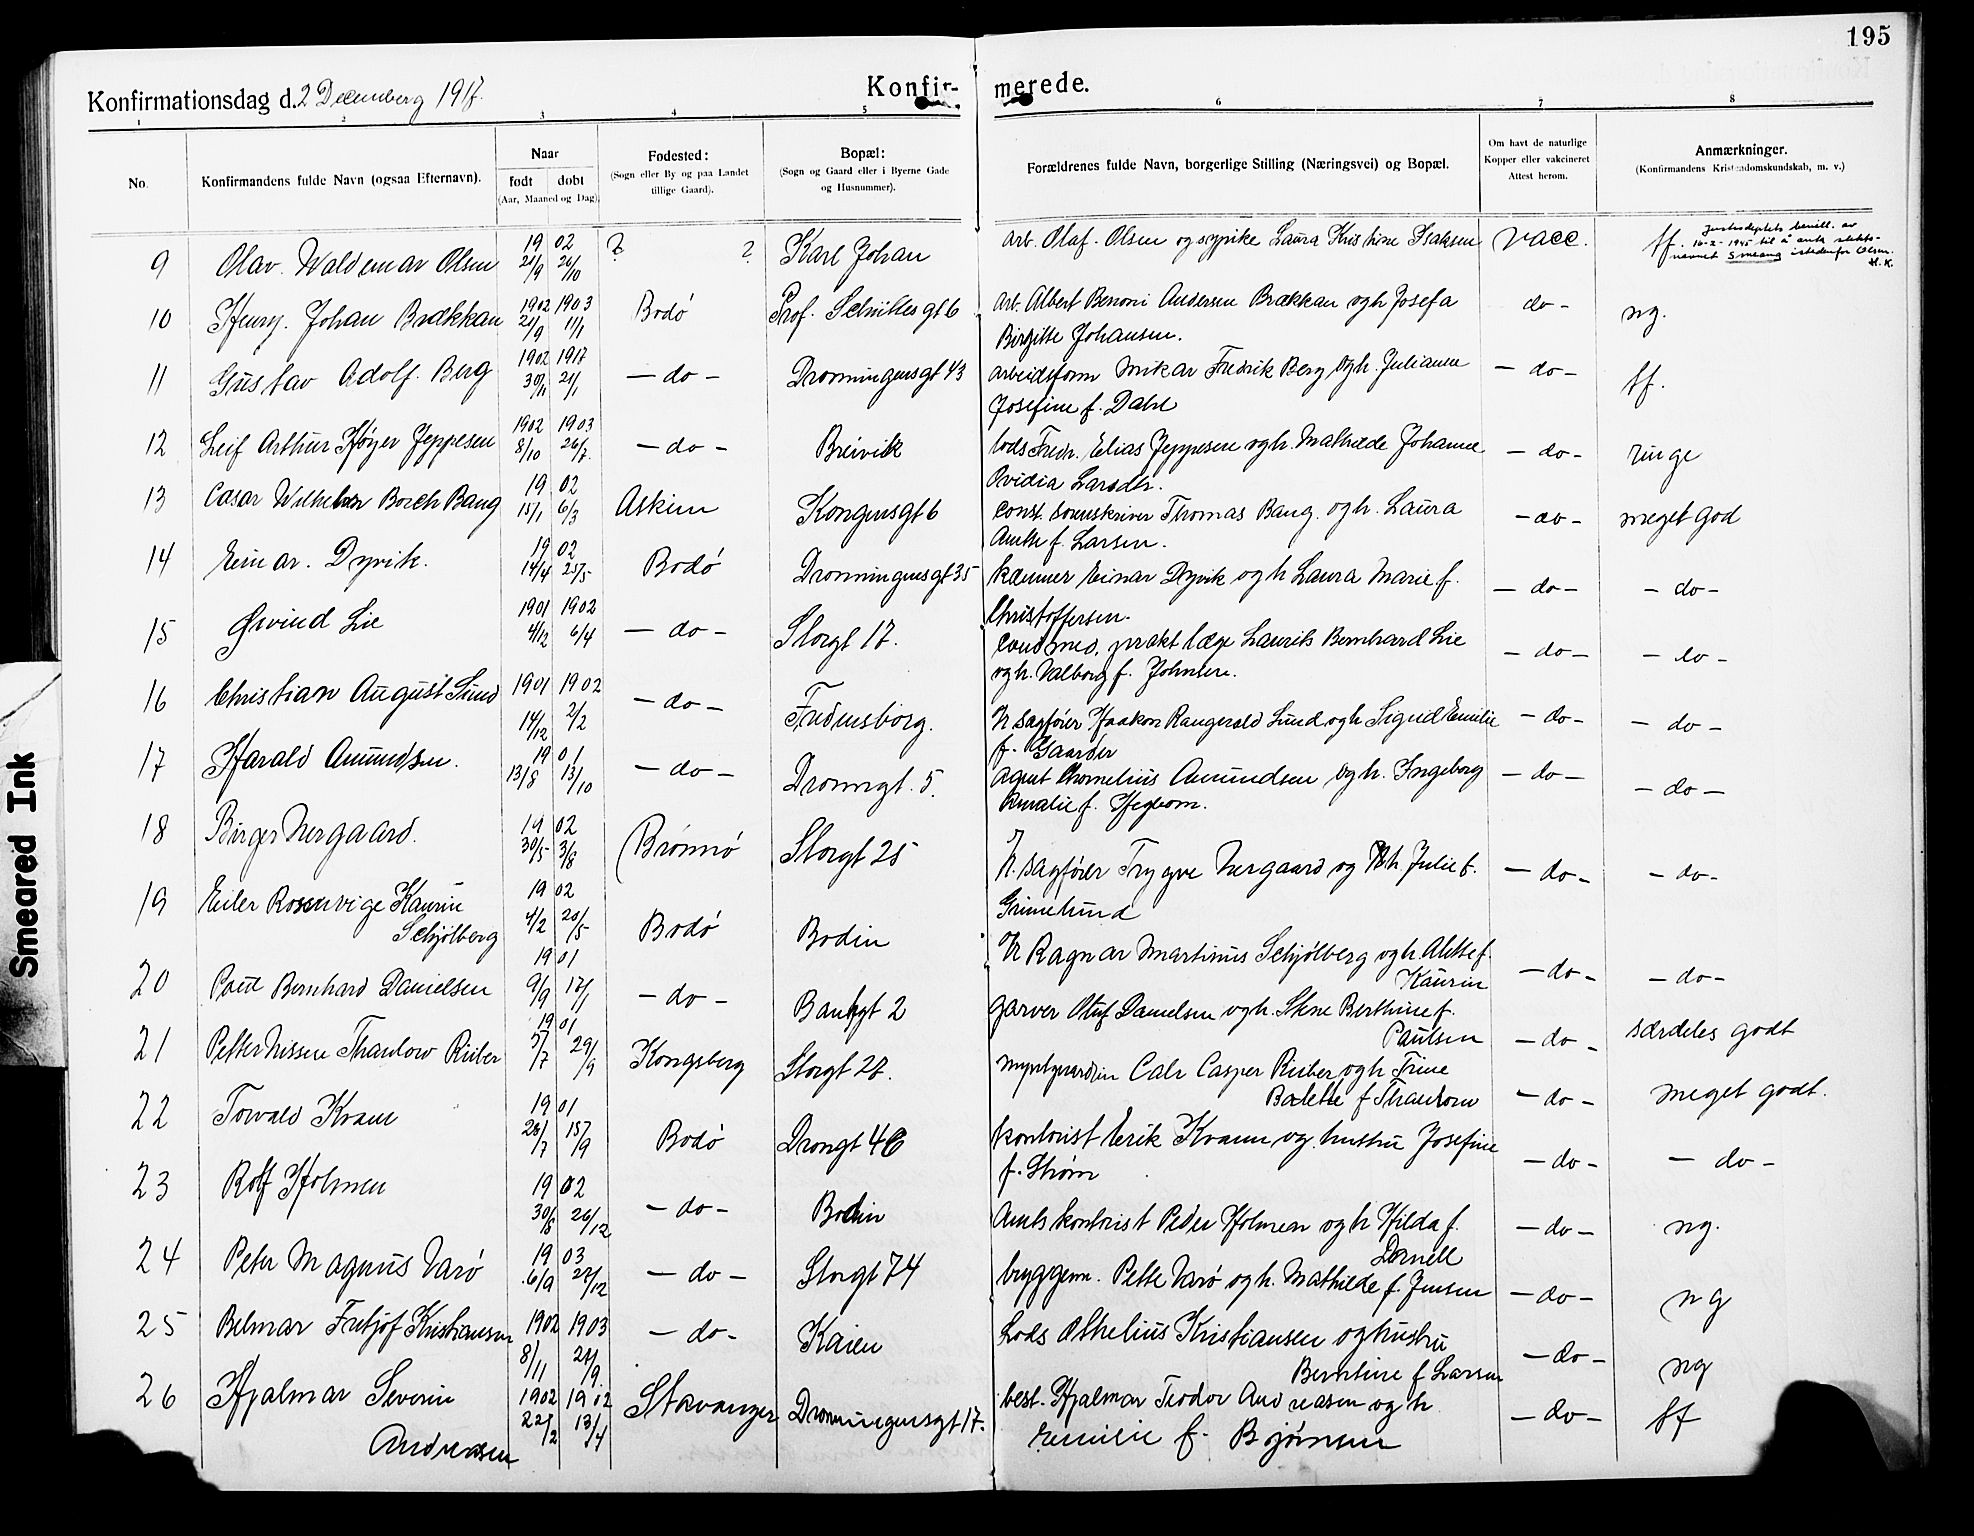 195
Konfirmationsdag d. 2 Decemberg 1917.
Konfir- merede.
1 2 3 4 5 6 7 8
No. Konfirmandens fulde Navn (ogsaa Efternavn). Naar født døbt (Aar, Maaned og Dag). Fødested: (Sogn eller By og paa Landet tillige Gaard). Bopæl: (Sogn og Gaard eller i Byerne Gade og Husnummer). Forældrenes fulde Navn, borgerlige Stilling (Næringsvei) og Bopæl. Om havt de naturlige Kopper eller vakcineret Attest herom. Anmærkninger. (Konfirmandens Kristendomskundskab, m. v.)
9 Olav Waldemar Olsen 1902 21/9 26/10 ? ? Karl Johan arb. Olaf Olsen og sypike Laura Kristine Isaksen vacc. tf. Justisdeptets bevill. av 16-2-1945 til å anta slekts-navnet Smeang istedenfor Olsen. H.K.
10 Henry Johan Brækkan 1902 21/9 1903 11/1 Bodø Prof. Schittes gt 6 arb. Albert Benoni Andersen Brækkan og h. Josefa
Birgitte Johansen. do - ng.
11 Gustav Adolf Berg 1902 30/11 1917 21/1 - do - Dronningensgt 43 arbeidsform Mikar Fredrik Berg og h. Julianne
Josefine f. Dahl - do - tf.
12 Leif Arthur Høyer Jeppesen 1902 8/10 1903 26/7 - do - Breivik lods Fredr. Elias Jeppesen og h. Mathilde Johanne
Ovidia Larsdtr. - do - ringe
13 Casar Wilhelm Borch Bang 1902 15/1 6/3 Askim Kongensgt 6 const. sorenskriver Thomas Bang og h. Laura
Anette f. Larsen. - do - meget god
14 Einar Dyvik. 1902 14/4 25/5 Bodø Dronningensgt 35 kæmner Einar Dyvik og h Laura Marie f.
Christoffersen. - do - - do -
15 Øivind Lie 1901 4/12 1902 6/4 - do - Storgt 17. cand med. prakt læge Laurits Bernhard Lie
og h. Valborg f. Johnsen. - do - - do -
16 Christian August Lund 1901 14/12 1902 2/2 - do - Fredensborg. o.r. sagfører Haakon Rangvald Lund og h Sigrid Emilie
f. Gaarder - do - - do -
17 Harald Amundsen. 1901 13/8 13/10 - do - Dronngt. 5. agent Chornelius Amundsen og h. Ingeborg
Amalie f. Hegbom. - do - - do -
18 Birger Nergaard. 1902 30/5 3/8 Brønnø Storgt 25 o.r. sagfører Trygve Nergaard og h. Julie f.
Grimelund - do - - do -
19 Eiler Rosenvige Kaurin
Schjølberg 1902 4/2 20/5 Bodø Bodin Ragnar Martinus Schjølberg og h. Alette f.
Kaurin - do - - do -
20 Paul Bernhard Danielsen 1901 9/9 12/1 - do - Bankgt 2 garver Oluf Danielsen og h. Stene Berthine f.
Paulsen - do - særdeles godt
21 Petter Nissen Thaulow Riiber 1901 5/7 29/9 Kongsberg Storgt 27. myntguardein Carl Casper Riiber og h Trine
Bolette f Thaulow - do - meget godt.
22 Torvald Kvam 1901 28/7 15/9 Bodø Drongt 46 kontorist Erik Kvam og hustru Josefine
f. Strøm - do - - do -
23 Rolf Holmen 1902 30/8 26/12 - do - Bodin Amtskontorist Peder Holmen og h Hilda f.
Dørnell - do - ng.
24 Peter Magnus Varø 1903 6/9 27/12 - do - Storgt 74 bryggem. Petter Varø og h. Mathilde f. Jensen - do - ng
25 Belmar Fritjof Kristiansen 1902 8/11 1903 27/9 - do - Kaien Lods Othelius Kristiansen og hustru
Berntine f Larsen - do - ng
26 Hjalmar Severin
Andreasen 1902 22/2 1902 13/4 Stavanger Dronningensgt 17. best. Hjalmar Teodor Andreasen og h
Emilie f. Bjørnsen - do - tf
Smeared Ink